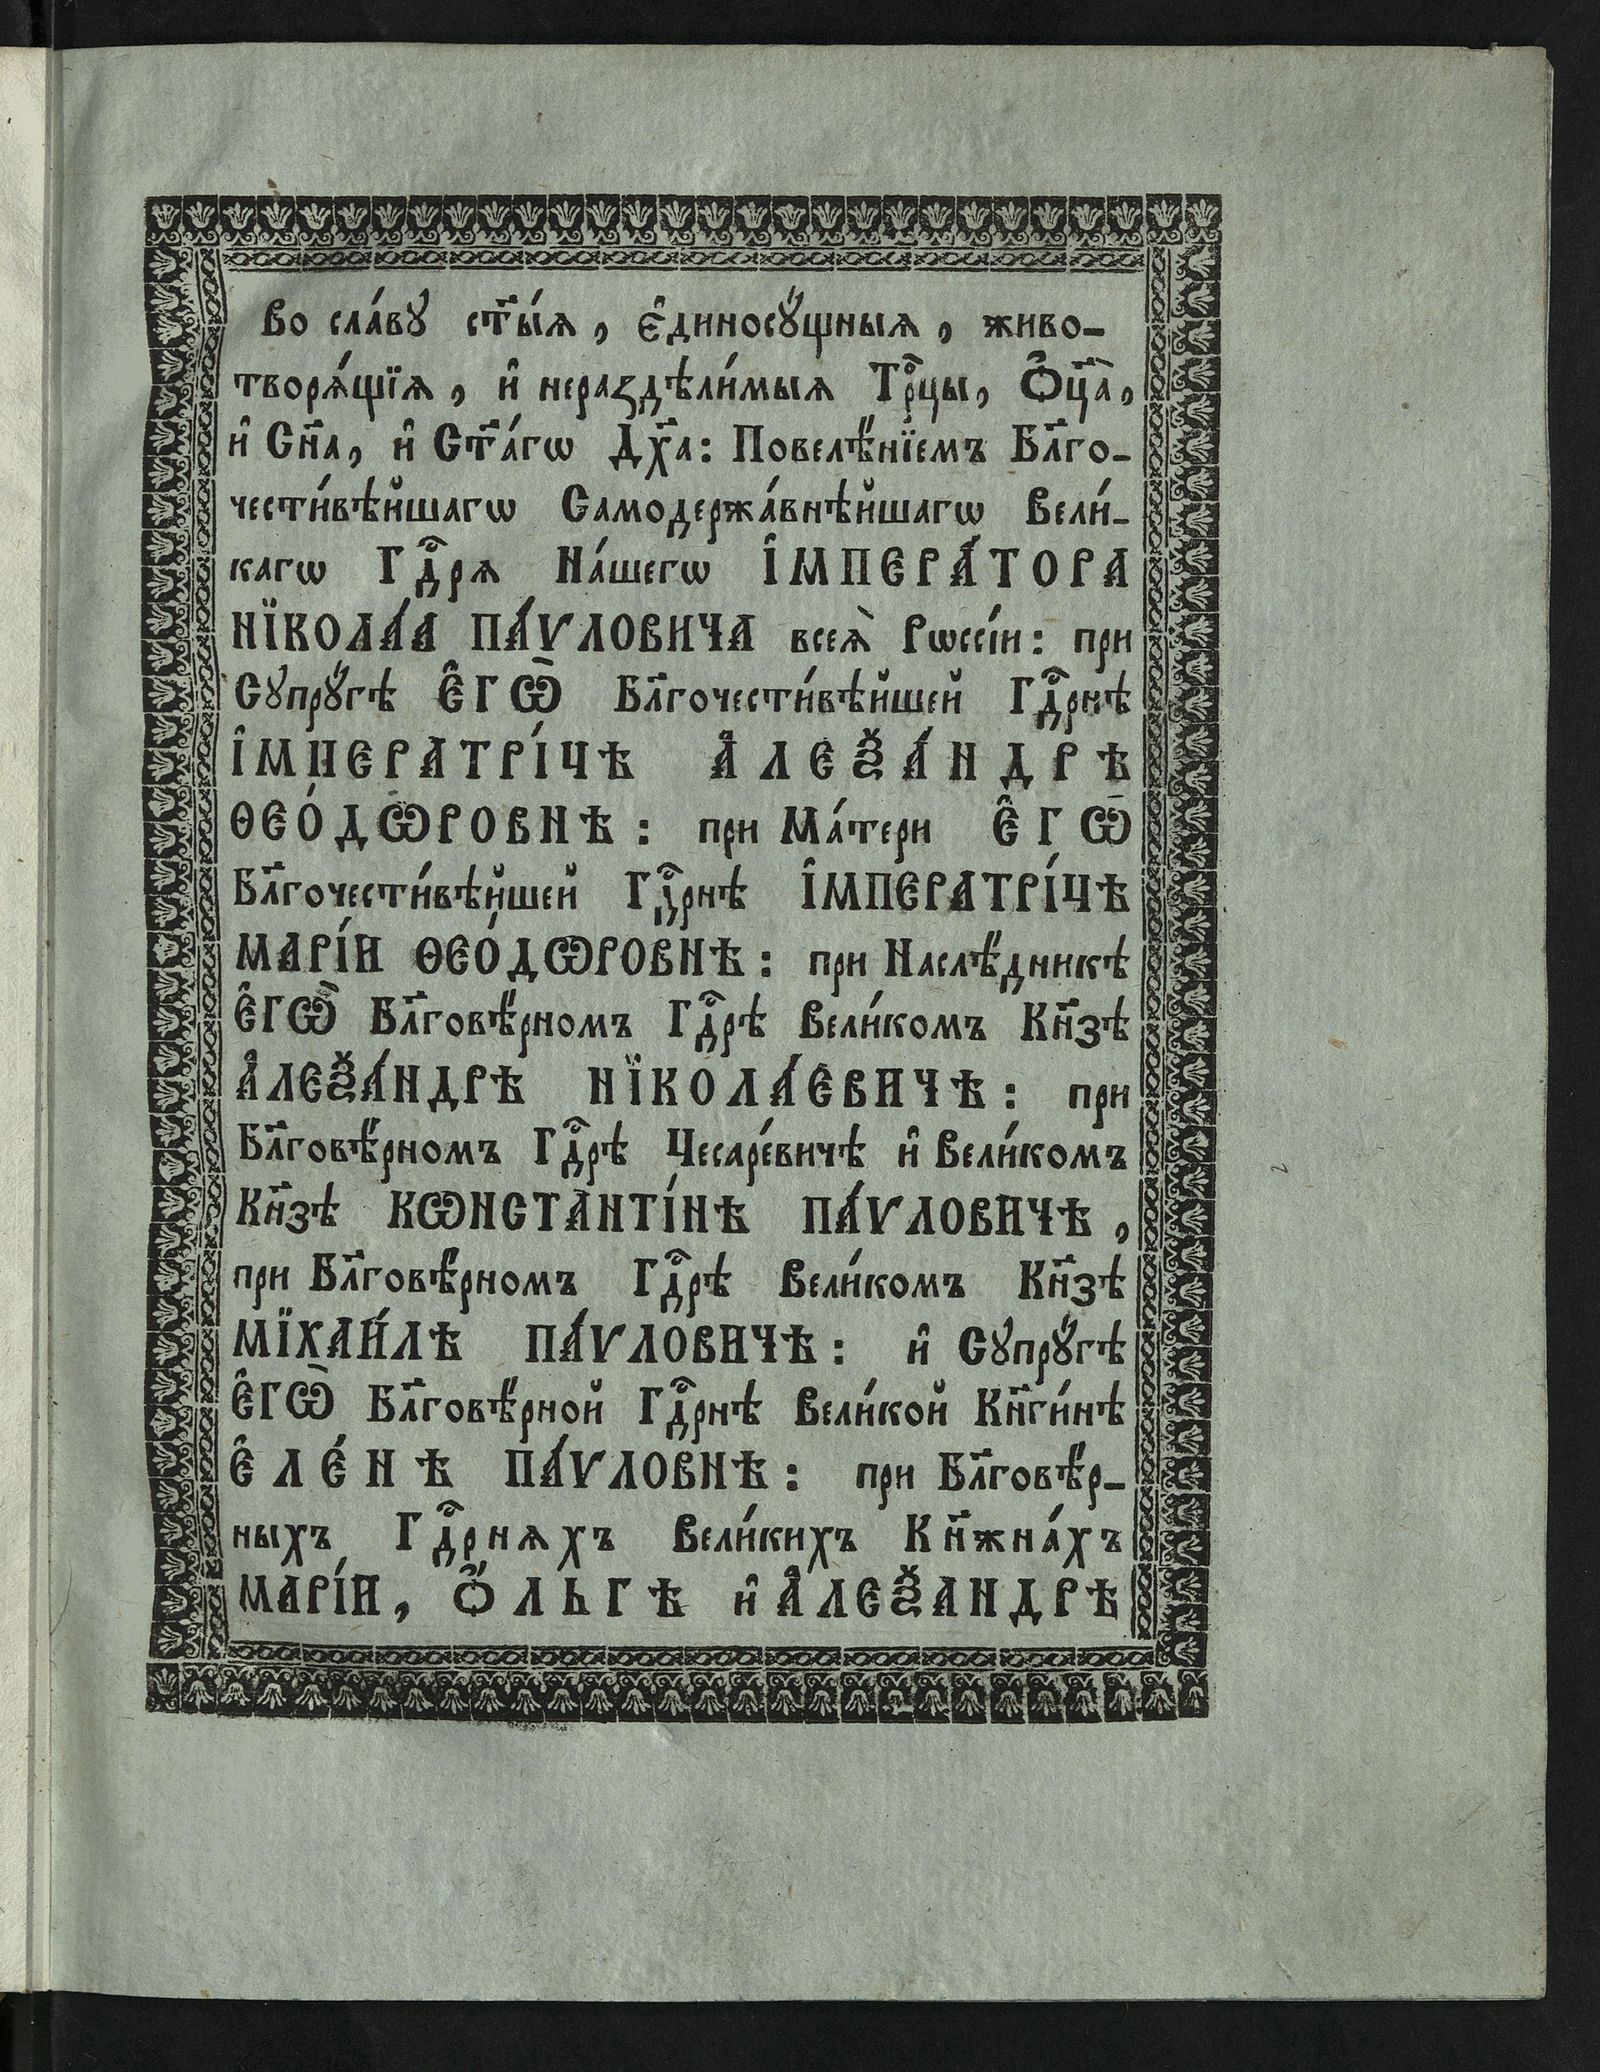 Во сла́вꙋ ст҃ы́ѧ, є҆диносꙋ́щныѧ, живо-
творѧ́щїѧ, и҆ нераздѣли́мыѧ Трⷪ҇цы, Ѻ҆ц҃а̀,
и҆ Сн҃а, и҆ Ст҃а́гѡ Дх҃а: Повелѣ́нїемъ Бл҃го-
чести́вѣйшагѡ Самодержа́внѣйшагѡ Вели́-
кагѡ Гдⷭ҇рѧ На́шегѡ І҆МПЕРА́ТОРА
НЇКОЛА́А ПА́ѴЛОВИЧА всеѧ̀ Рѡссі́и: при
Сꙋпрꙋ́гѣ Є҆ГѠ̀ Бл҃гочести́вѣйшей Гдⷭ҇рнѣ
І҆МПЕРАТРІ́ЦѢ А҆ЛЕѮА́НДРѢ
ѲЕО́ДѠРОВНѢ: при Ма́тери Є҆ГѠ̀
Бл҃гочести́вѣйшей Гдⷭ҇рнѣ І҆МПЕРАТРІ́ЦѢ
МАРІ́И ѲЕО́ДѠРОВНѢ: при Наслѣ́дникѣ
Є҆ГѠ̀ Бл҃говѣ́рномъ Гдⷭ҇рѣ Вели́комъ Кн҃зѣ
А҆ЛЕѮА́НДРѢ НЇКОЛА́ЕВИЧѢ: при
Бл҃говѣ́рномъ Гдⷭ҇рѣ Цесаре́вичѣ и҆ Вели́комъ
Кн҃зѣ КѠНСТАНТІ́НѢ ПА́ѴЛОВИЧѢ,
при Бл҃говѣ́рномъ Гдⷭ҇рѣ Вели́комъ Кн҃зѣ
МЇХАИ́ЛѢ ПА́ѴЛОВИЧѢ: и҆ Сꙋпрꙋ́гѣ
Є҆ГѠ̀ Бл҃говѣ́рной Гдⷭ҇рнѣ Вели́кой Кн҃ги́нѣ
Є҆ЛЕ́НѢ ПА́ѴЛОВНѢ: при Бл҃говѣ́р-
ныхъ Гдⷭ҇рнѧхъ Вели́кихъ Кн҃жна́хъ
МАРІ́И, Ѻ҆́ЛЬГѢ и҆ А҆ЛЕѮАНДРѢ